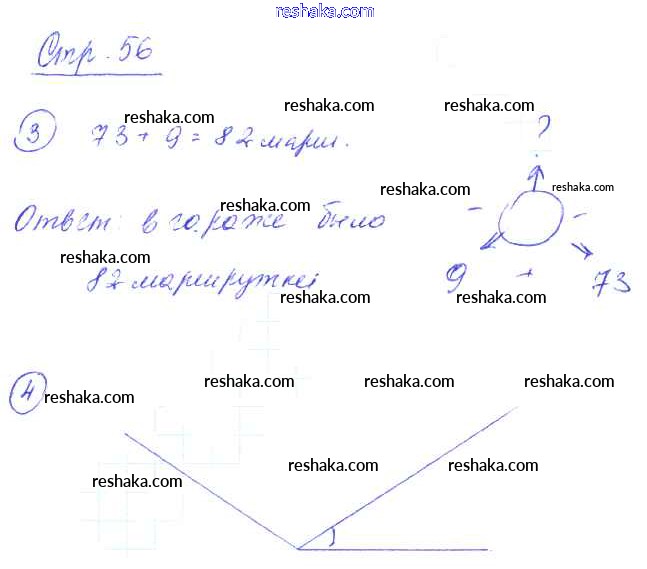 reshaka.com
Стр. 56
reshaka.com reshaka.com
reshaka.com
③ 73 + 9 = 82 марш.
?
reshaka.com reshaka.com reshaka.com
Ответ: в гараже было
- -
reshaka.com
82 маршрутки
9 + 73
reshaka.com reshaka.com
④ reshaka.com reshaka.com reshaka.com reshaka.com
reshaka.com reshaka.com reshaka.com